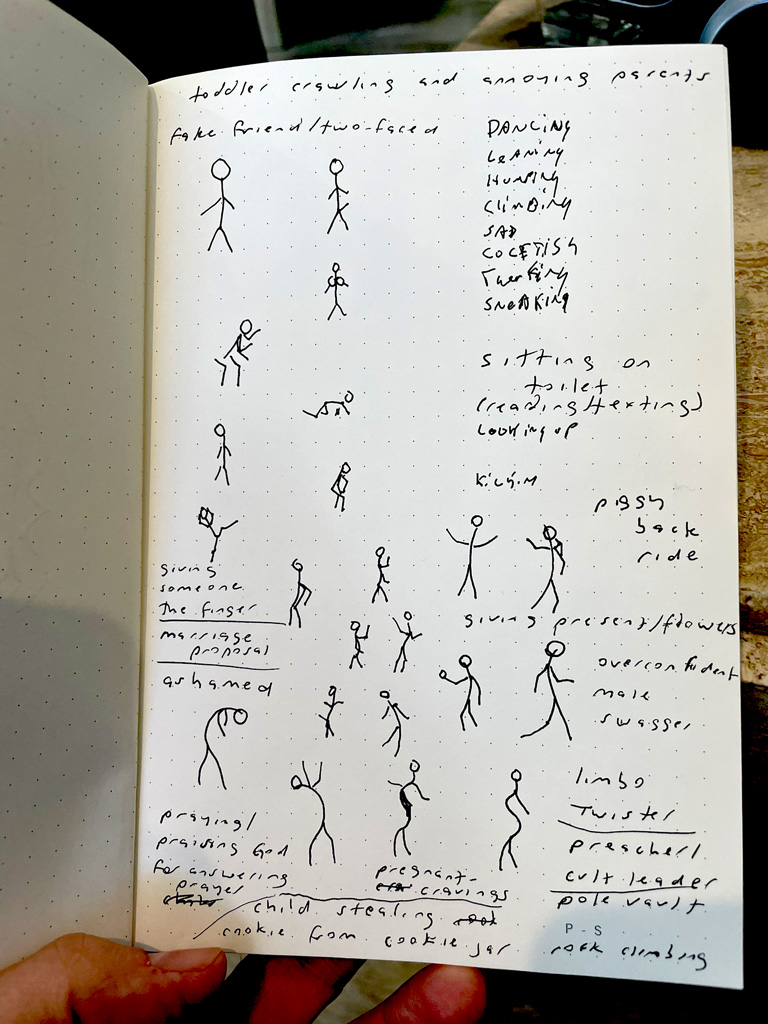 toddler crawling and annoying parents
fake friend/two-faced
DANCING
LEANING
HUMPING
CLIMBING
SAD
COCETISH
TWERKING
SNEAKING
sitting on
toilet
(reading/texting)
LOOKING UP
piggy
back
ride
giving
someone
the finger
giving present/flowers
marriage
proposal
overconfident
male
swagger
ashamed
limbo
Twister
praying/
praising God
for answering
prayer
preacher/
cult leader
pregnant-
cravings
pole vault
child stealing
cookie from cookie jar
P-S
rock climbing